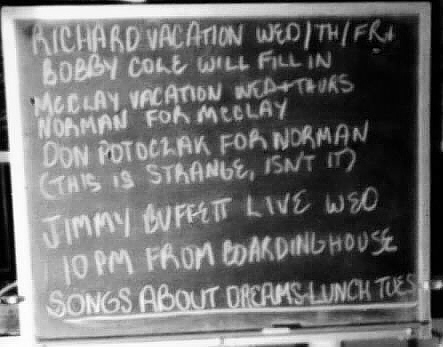 RICHARD VACATION WED/TH/FRI
BOBBY COLE WILL FILL IN
MCCLAY VACATION WED+THURS
NORMAN FOR MCCLAY
DON POTOCZAK FOR NORMAN
(THIS IS STRANGE, ISNT IT)
JIMMY BUFFETT LIVE WED
10 PM FROM BOARDINGHOUSE
SONGS ABOUT DREAMS-LUNCH TUES